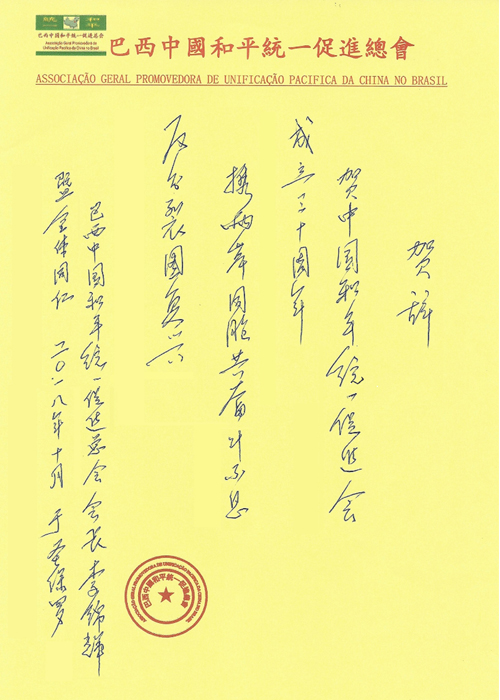 巴西中国和平統一促進總会
Associação Geral Promovedora de
Unificação Pacífica da China no Brasil
巴西中國和平統一促進總會
ASSOCIAÇÃO GERAL PROMOVEDORA DE UNIFICAÇÃO PACIFICA DA CHINA NO BRASIL
贺辞
贺中国和平统一促进会
成立三十周年
携两岸同胞共奋斗不息
反台裂图复兴
巴西中国和平统一促进总会会长李锦辉
暨全体同仁 二〇一八年十月 于圣保罗
巴西中國和平統一促進總會